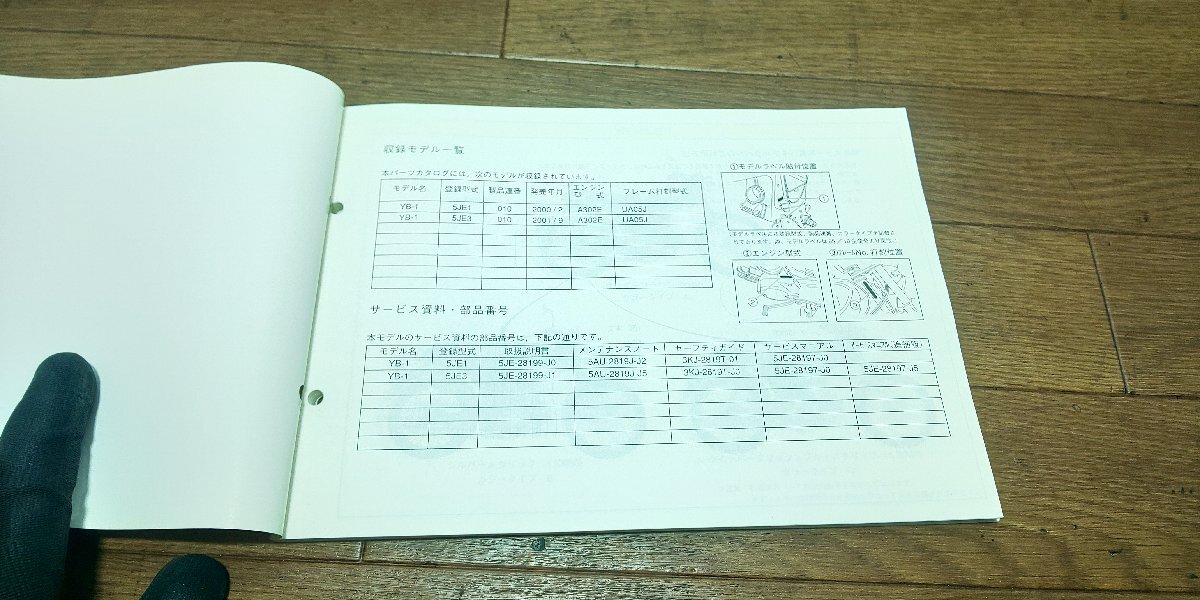 収録モデル一覧
本パーツカタログには、次のモデルが収録されています。
モデル名 登録型式 製品連番 発売年月 エンジン型式 フレーム打刻型式
YB-1 5JE1 010 2000/2 A302E UA05J
YB-1 5JE3 010 2001/9 A302E UA05J
①モデルラベル貼付位置
①
②エンジン型式
②
サービス資料・部品番号
本モデルのサービス資料の部品番号は、下記の通りです。
モデル名 登録型式 取扱説明書 メンテナンスノート セーフティガイド サービスマニュアル
YB-1 5JE1 5JE-28199-J0 5AU-2819J-J2 5JE-28197-J0
YB-1 5JE3 5JE-28199-J1 5JE-28197-J0